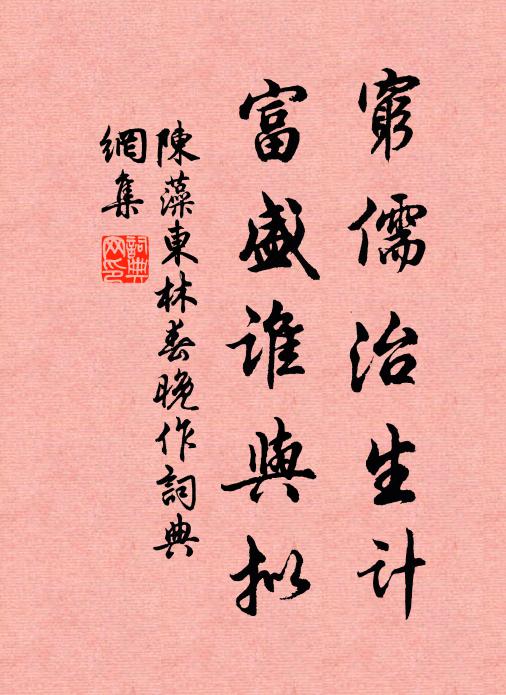 窮儒治生計
富盛誰與拟
陳藻東林春晚作詞典
網集
詞典网印